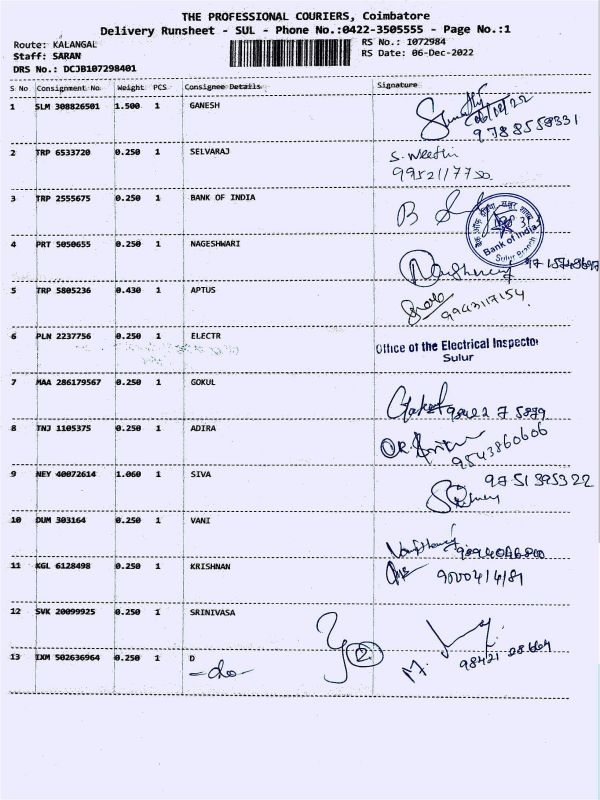 THE PROFESSIONAL COURIERS, Coimbatore
Delivery Runsheet - SUL - Phone No.:0422-3505555 - Page No.:1
Route: KALANGAL
RS No.: I072984
Staff: SARAN
RS Date: 06-Dec-2022
DRS No.: DCJB107298401
S No Consignment No Weight PCS Consignee Details Signature
1 SLM 308826501 1.500 1 GANESH
06/12/22
9788558331
2 TRP 6533720 0.250 1 SELVARAJ
S.
9952117750
3 TRP 2555675 0.250 1 BANK OF INDIA
Bank of India
Sulur Branch
4 PRT 5050655 0.250 1 NAGESHWARI
5 TRP 5805236 0.430 1 APTUS
9943117154
6 PLN 2237756 0.250 1 ELECTR
Office of the Electrical Inspector
Sulur
7 MAA 286179567 0.250 1 GOKUL
Gokul 98422 75899
8 TNJ 1105375 0.250 1 ADIRA
9543860606
9 NEY 40072614 1.060 1 SIVA
9751395322
10 DUM 303164 0.250 1 VANI
11 KGL 6128498 0.250 1 KRISHNAN
9000414181
12 SVK 20099925 0.250 1 SRINIVASA
2
13 IXM 502636964 0.250 1 D
M.
98421 28664